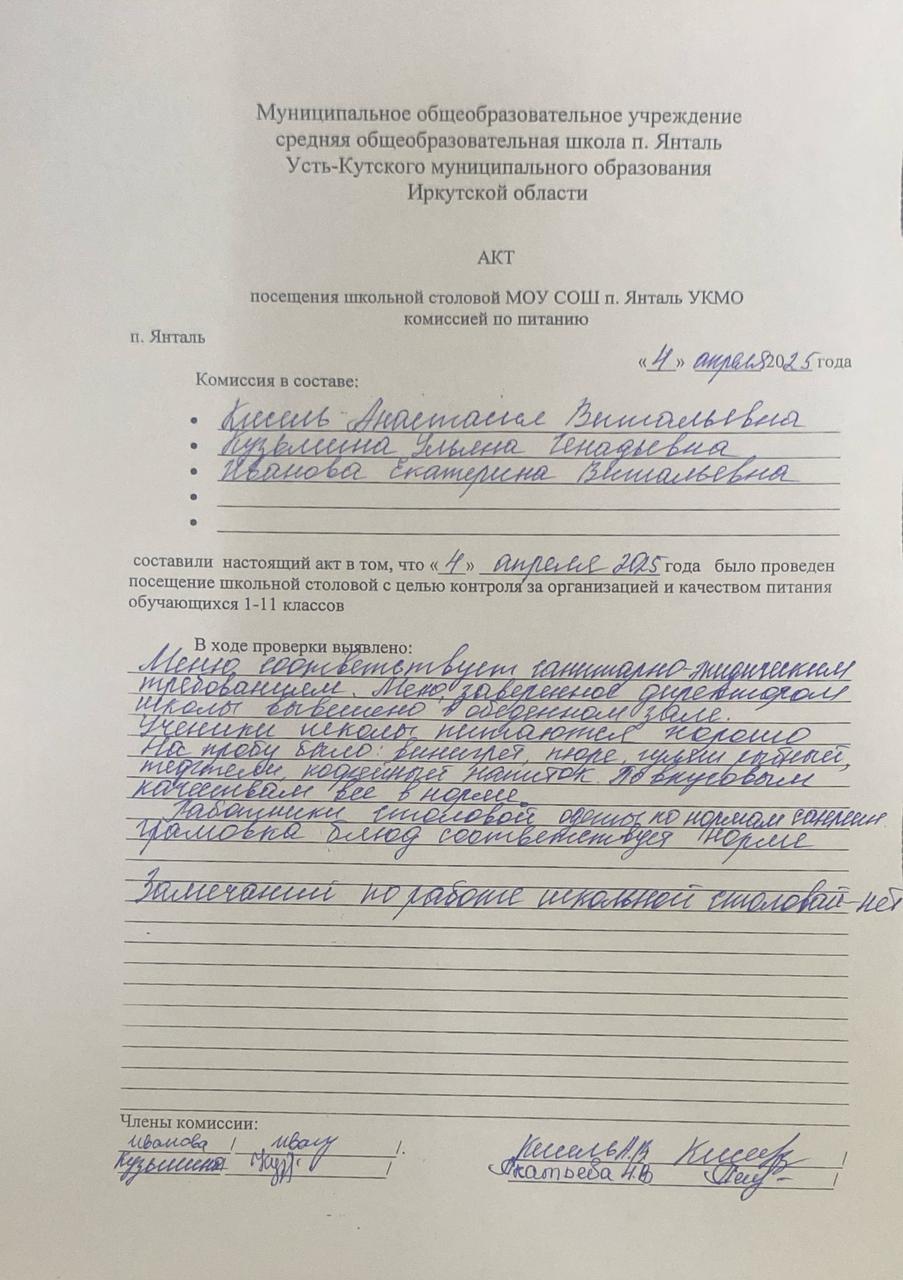 Муниципальное общеобразовательное учреждение
средняя общеобразовательная школа п. Янталь
Усть-Кутского муниципального образования
Иркутской области
АКТ
посещения школьной столовой МОУ СОШ п. Янталь УКМО
комиссией по питанию
п. Янталь
«4» апреля 2025 года
Комиссия в составе:
• Кисель Анастасия Витальевна
• Кузьмина Ульяна Генадьевна
• Иванова Екатерина Витальевна
•
•
составили настоящий акт в том, что «4» апреля 2025 года было проведен
посещение школьной столовой с целью контроля за организацией и качеством питания
обучающихся 1-11 классов
В ходе проверки выявлено:
Меню соответствует санитарно-
требованием. Меню, заверенное директором
школы вывешено в обеденном зале.
Ученики школы питаются хорошо
На пробу было: винегрет, пюре, рыбный,
тефтели, напиток. По вкусовым
качествам все в норме.
Работники столовой одеты по нормам
грамовка блюд соответствует норме
Замечаний по работе школьной столовай-нет
Члены комиссии:
Иванова / /.
Кузьмина /
Кисель А.В /
Акатьева Н.В /